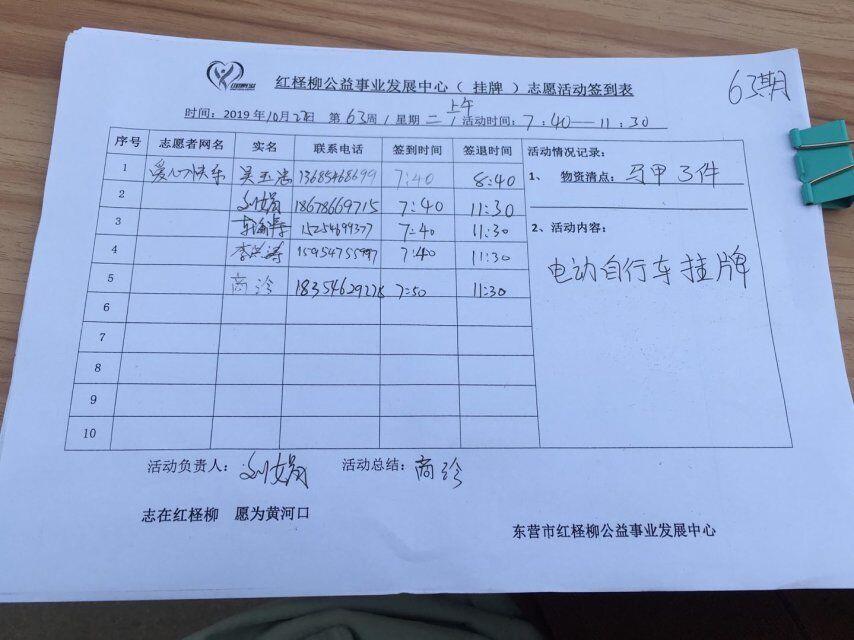 红柽柳公益事业发展中心（ 挂牌 ）志愿活动签到表
63期
上午
时间：2019年10月27日 第 63周 / 星期 二 / 活动时间：7：40—11：30
序号 志愿者网名 实名 联系电话 签到时间 签退时间 活动情况记录：
1 爱心快乐 13685468699 7:40 8:40 1、 物资清点：马甲3件
2 刘娟 18678669715 7:40 11:30
3 15254699377 7:40 11:30 2、活动内容：
4 15954755997 7:40 11:30
电动自行车挂牌
5 商珍 18354629278 7:50 11:30
6
7
8
9
10
活动负责人：刘娟 活动总结：商珍
志在红柽柳 愿为黄河口
东营市红柽柳公益事业发展中心